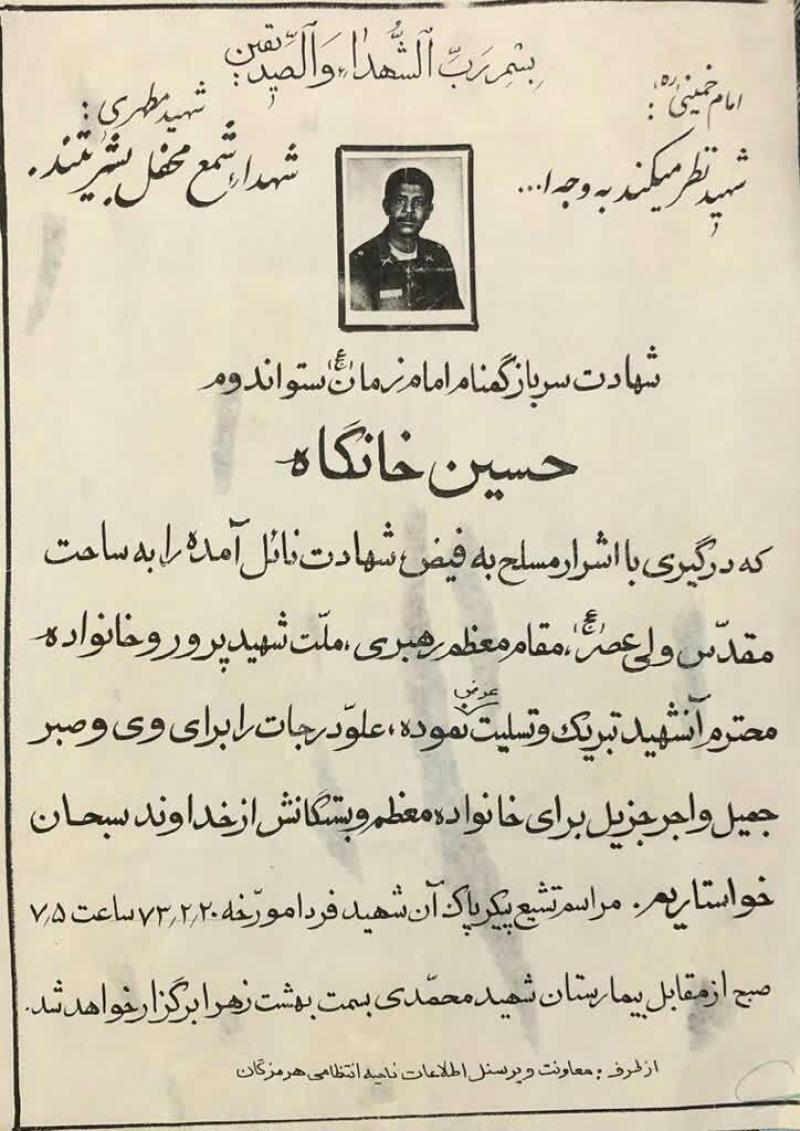 بسم رب الشهداء والصدیقین
امام خمینی (ره):
شهید نظر میکند به وجه ا...
شهید مطهری:
شهداء شمع محفل بشریتند.
شهادت سرباز گمنام امام زمان (عج) ستواندوم
حسین خانگاه
که درگیری با اشرار مسلح به فیض شهادت نائل آمده را به ساحت
مقدّس ولی عصر (عج)، مقام معظم رهبری، ملّت شهیدپرور و خانواده
محترم آنشهید تبریک و تسلیت عرض نموده، علوّ درجات را برای وی و صبر
جمیل و اجر جزیل برای خانواده معظم و بستگانش از خداوند سبحان
خواستاریم. مراسم تشیع پیکر پاک آن شهید فردا مورّخه ۷۳٫۲٫۲۰ ساعت ۷٫۵
صبح از مقابل بیمارستان شهید محمّدی بسمت بهشت زهرا برگزار خواهد شد.
از طرف: معاونت و پرسنل اطلاعات ناحیه انتظامی هرمزگان